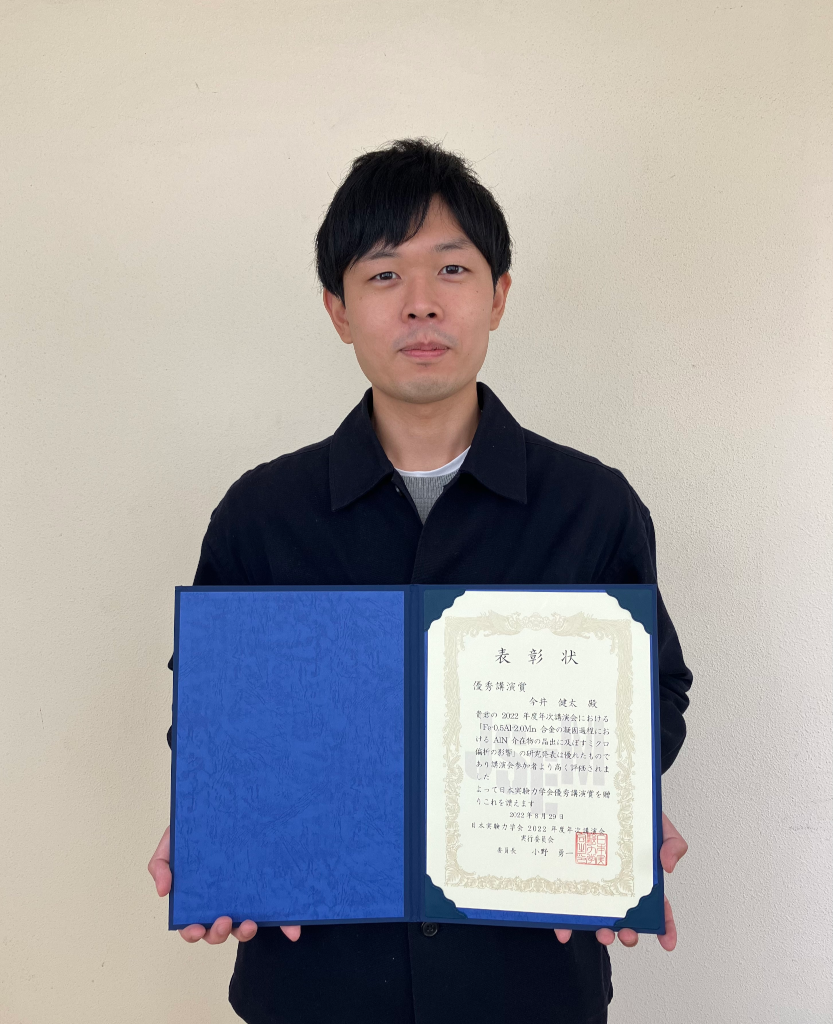 表彰状
優秀講演賞
今井 健太 殿
貴君の 2022 年度年次講演会における
「Fe-0.5Al-2.0Mn 合金の凝固過程にお
ける AlN 介在物の晶出に及ぼすミクロ
偏析の影響」の研究発表は優れたもので
あり講演会参加者より高く評価されま
した
よって日本実験力学会優秀講演賞を贈
りこれを讃えます
2022年8月29日
日本実験力学会 2022 年度年次講演会
実行委員会
委員長 小野 勇一